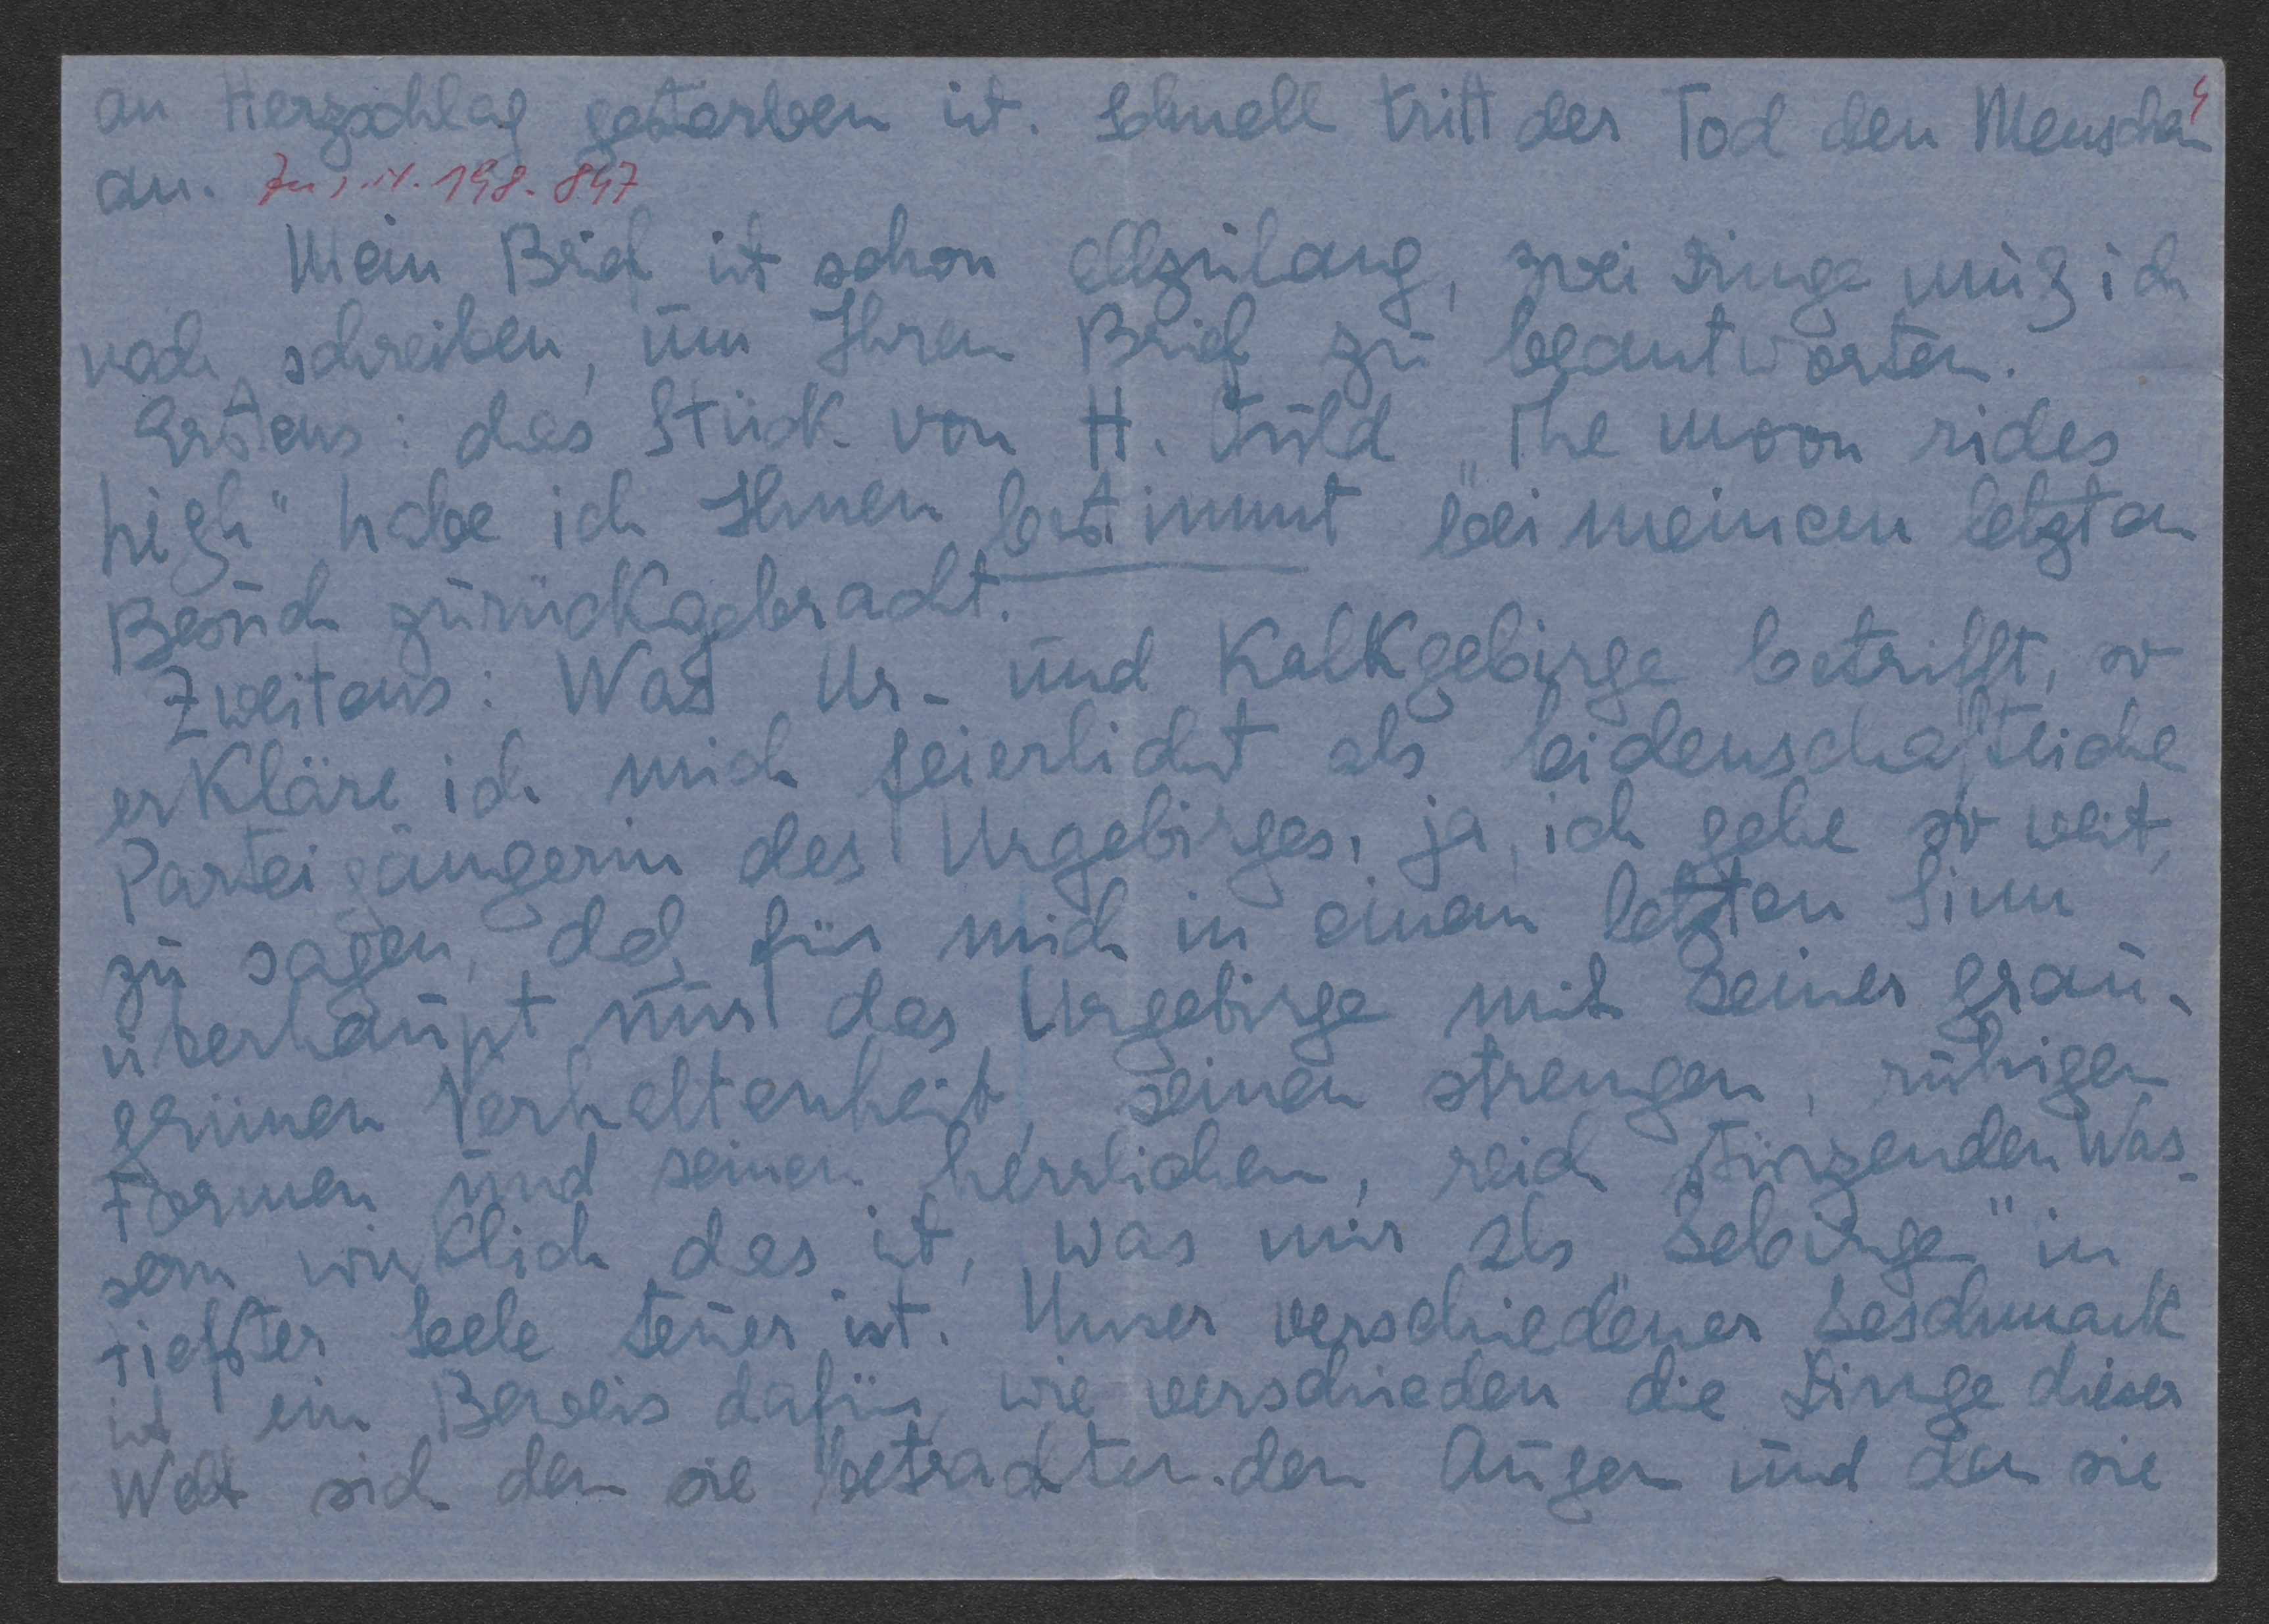 an Herzschlag gestorben ist. Schnell tritt der Tod den Menschen
4
an. I.N. 198.847
Mein Brief ist schon allzulang, zwei Dinge muß ich
noch schreiben, um Ihren Brief zu beantworten.
Erstens: das Stück von H. Ould „The moon rides
high“ habe ich Ihnen bestimmt bei meinem letzten
Besuch zurückgebracht.
Zweitens: Was Ur- und Kalkgebirge betrifft, so
erkläre ich mich feierlichst als leidenschaftliche
Parteigängerin des Urgebirges, ja, ich gehe so weit,
zu sagen, daß für mich in einem letzten Sinn
überhaupt nur das Urgebirge mit seiner grau-
grünen Verhaltenheit, seinen strengen, ruhigen
Formen und seinen herrlichen, reich stürzenden Was-
sern wirklich das ist, was mir als „Gebirge“ in
tiefster Seele teuer ist. Unser verschiedener Geschmack
ist ein Beweis dafür, wie verschieden die Dinge dieser
Welt sich den sie betrachtenden Augen und den sie